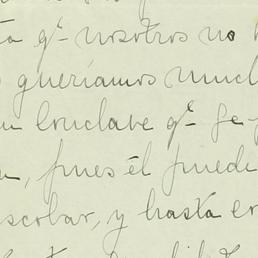 ta qe nosotros no
queríamos much
un Conclave qe Je
, pues él puede
scobar, y hasta en